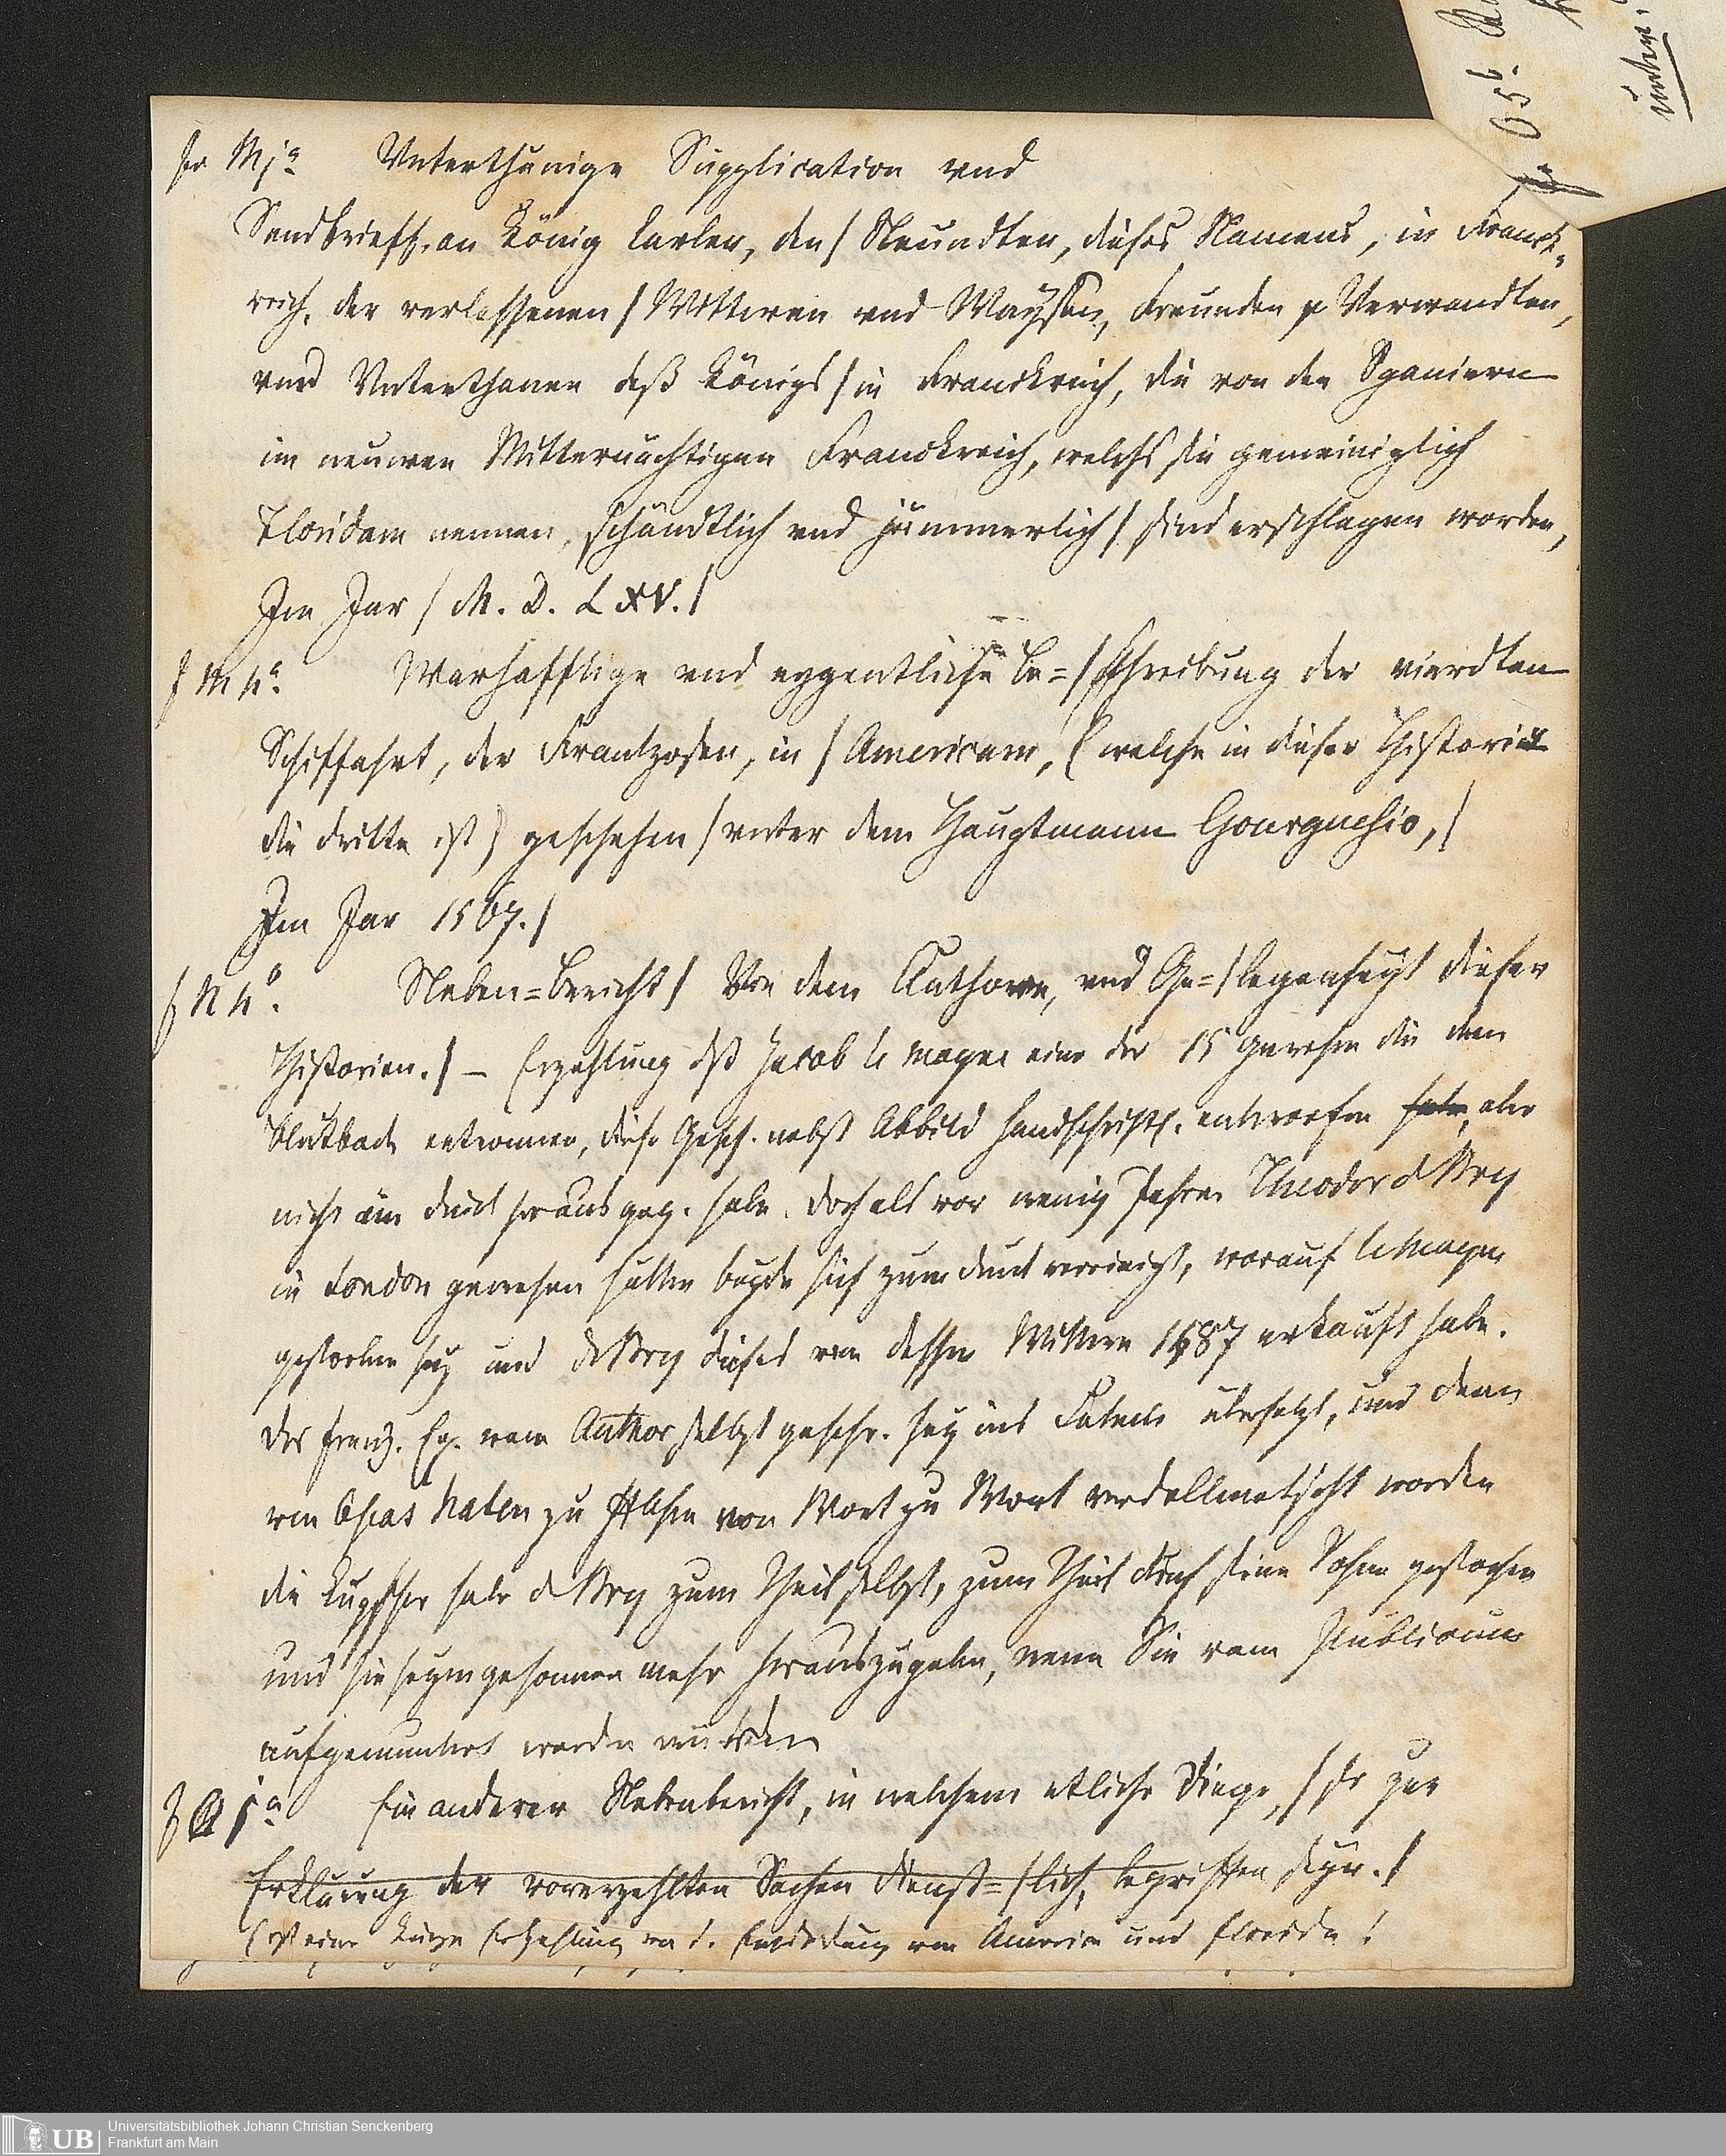 Unterthänige Supplication vnd
Sendbrieff, an König Carlen, den / Neundten, dieses Namens, in Franck-
reich, der verlassenen / Wittwen vnd Waysen, Freunden Verwandten,
vnd Vnterthanen deß Königs / in Franckreich, die von den Spaniern
im neuwen Mitternächtigen Franckreich, welchs sie gemeiniglich
Floridam nennen, schändtlich vnd jämmerlich / sind erschlagen worden,
Im Jar / M. D. LXV. /
Warhafftige vnd eygentliche Be= / schreibung der vierdten
Schiffahrt, der Frantzosen, in / Americam, (welche in dieser Historien
die dritte ist) geschehen / vnter dem Hauptmann Gourguesio, /
Im Jar 1567. /
Neben=Bericht / Von dem Authorn, vnd Ge= / legenheyt dieser
Historien. / – Erzehlung daß Jacob le moyne einer der 15 gewesen die dem
Blutbade entronnen, diese Gesch. nebst Abbild handschriftl. entworfen habe, aber
nicht im druck herausgeg. habe. doch als vor wenig Jahren Theodor d Bry
in London gewesen hätten beyde sich zum druck vereinigt, worauf le moyne
gestorben sey und de Bry dieses von dessen Wittwe 1587 erkauft habe.
Das franz. Ex. vom Author selbst geschr. sey ins Latein übersetzt, und dann
von Oseas halen zu von Wort zu Wort verdollmetscht worden
die Kupffer habe d Bry zum Theil selbst, zum Theil durch seine Söhne gestochen
und sie seyen gesonnen mehr herauszugeben, wenn Sie vom Publicum
aufgemuntert werden würden
Ein anderer Nebenbericht, in welchem etliche Dinge, / so zur
Erklärung der vorerzehlten Sachen dienst= / lich, begriffen seyn. /
(ist eine kurze Erzehlung von d. Entdeckung von America und Florida!
065
unten.
Universitätsbibliothek Johann Christian Senckenberg
Frankfurt am Main
UB